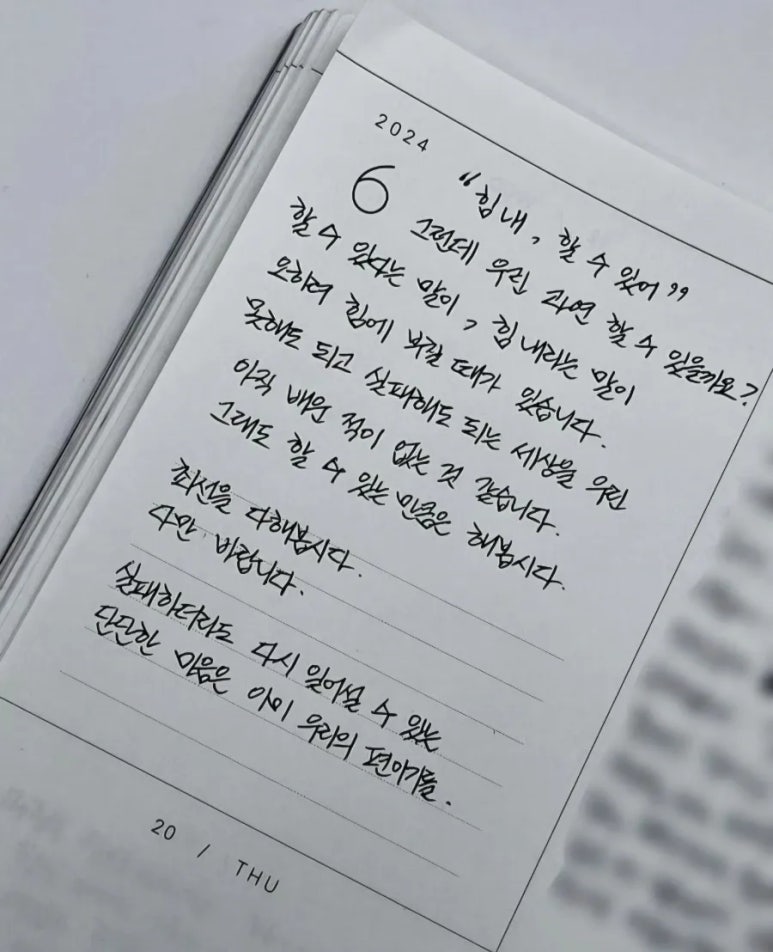 2024
6
“힘내, 할 수 있어”
그런데 우린 과연 할 수 있을까요?
할 수 있다는 말이, 힘내라는 말이
오히려 힘에 부칠 때가 있습니다.
못해도 되고 실패해도 되는 세상을 우린
아직 배운 적이 없는 것 같습니다.
그래도 할 수 있는 만큼은 해봅시다.
최선을 다해봅시다.
다만 바랍니다.
실패하더라도 다시 일어설 수 있는
단단한 마음은 우리의 편이기를.
20 / THU